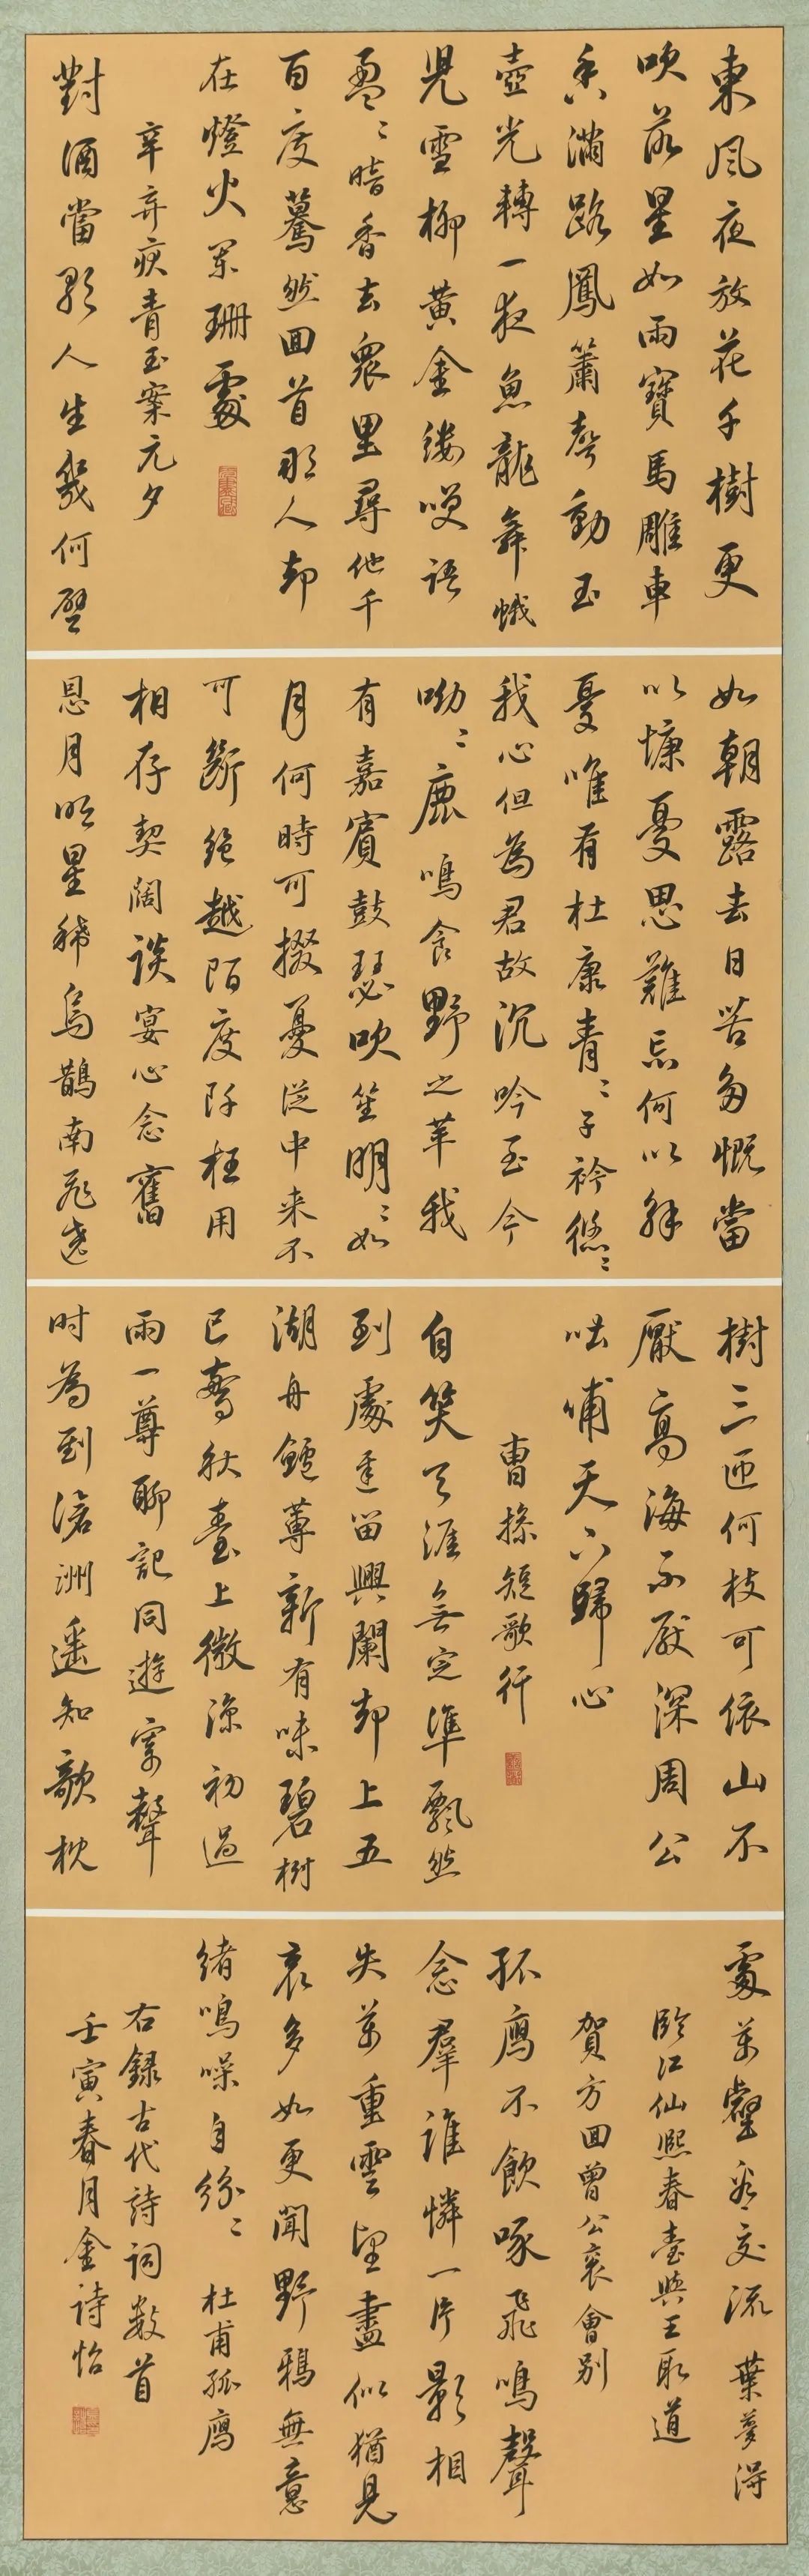 東風夜放花千樹更
吹落星如雨寶馬雕車
香滿路鳳簫聲動玉
壺光轉一夜魚龍舞蛾
兒雪柳黃金縷笑語
盈〻暗香去衆里尋他千
百度驀然回首那人却
在燈火闌珊處
辛弃疾青玉案元夕
對酒當歌人生幾何譬
如朝露去日苦多慨當
以慷憂思難忘何以解
憂唯有杜康青〻子衿悠〻
我心但為君故沉吟至今
呦〻鹿鳴食野之苹我
有嘉賓鼓瑟吹笙明〻如
月何時可掇憂從中来不
可斷絕越陌度阡枉用
相存契闊談宴心念舊
恩月明星稀烏鵲南飛遶
樹三匝何枝可依山不
厭高海不厭深周公
吐哺天下歸心
曹操短歌行
自笑天涯無定準飄然
到處遲留興闌却上五
湖舟鱸蓴新有味碧樹
已驚秋臺上微凉初過
雨一尊聊記同遊寄聲
时為到滄洲遥知歌枕
處萬壑看交流 葉夢得
臨江仙熙春臺與王取道
賀方回曾公衮會别
孤鴈不飲啄飛鳴聲
念羣誰憐一片影相
失萬重雲望盡似猶見
哀多如更聞野鴉無意
緒鳴噪自紛〻 杜甫孤鴈
右録古代詩詞数首
壬寅春月金詩怡